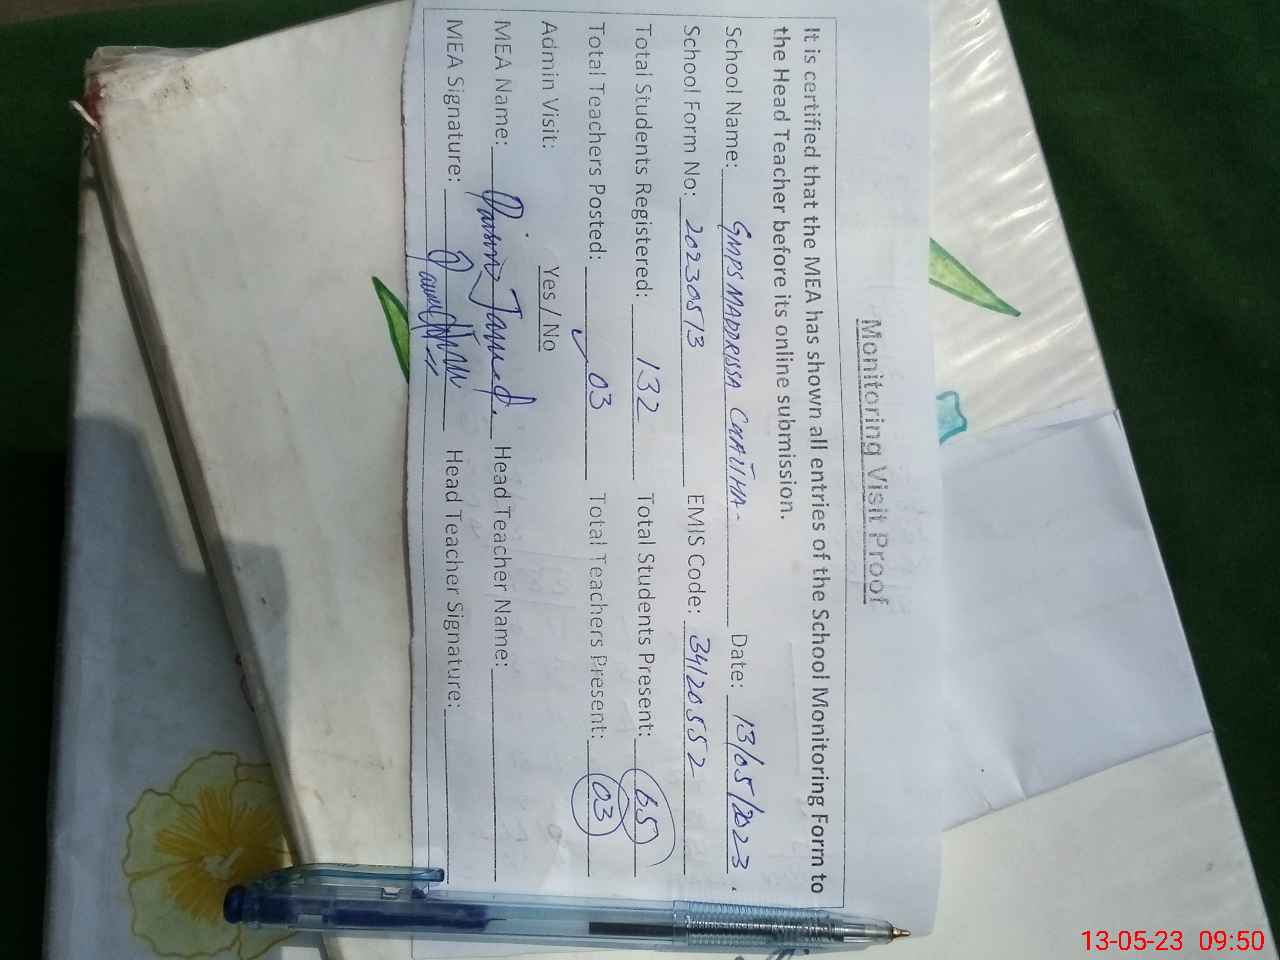 Monitoring Visit Proof
It is certified that the MEA has shown all entries of the School Monitoring Form to
the Head Teacher before its online submission.
School Name: GMPS MADRISSA CHATTHA- Date: 13/05/2023.
School Form No: 20230513 EMIS Code: 34120552
Total Students Registered: 132 Total Students Present: 65
Total Teachers Posted: 03 Total Teachers Present: 03
Admin Visit: Yes / No
MEA Name: Head Teacher Name:
MEA Signature: Head Teacher Signature:
13-05-23 09:50